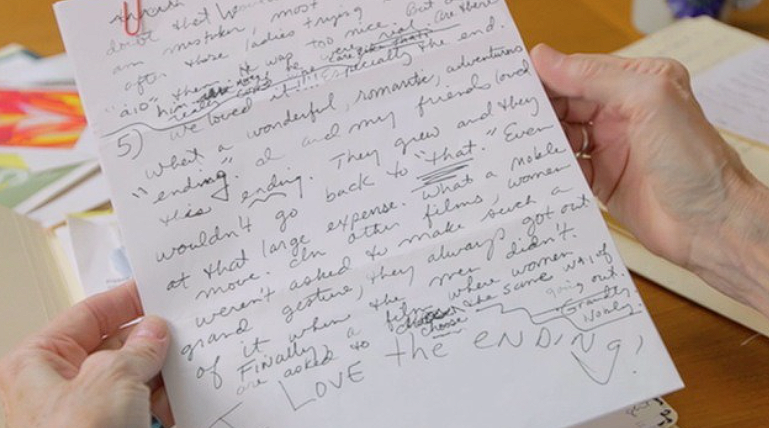 doubt that
am mistaken, most
after those ladies trying
"a10" them it was too nice. But are there
him he very real.
really care
we loved it!!!! especially the end.
5) What a wonderful, romantic, adventurous
"ending." I and my friends loved
this ending. They grew and they
wouldn't go back to "that." Even
at that large expense. What a noble
move. In other films, women
weren't asked to make such a
grand gesture, they always got out
of it when the men didn't.
FINally, a film where women
are asked to choose the same way of
going out.
Grandly
Nobley.
I LOVE the ENDING!